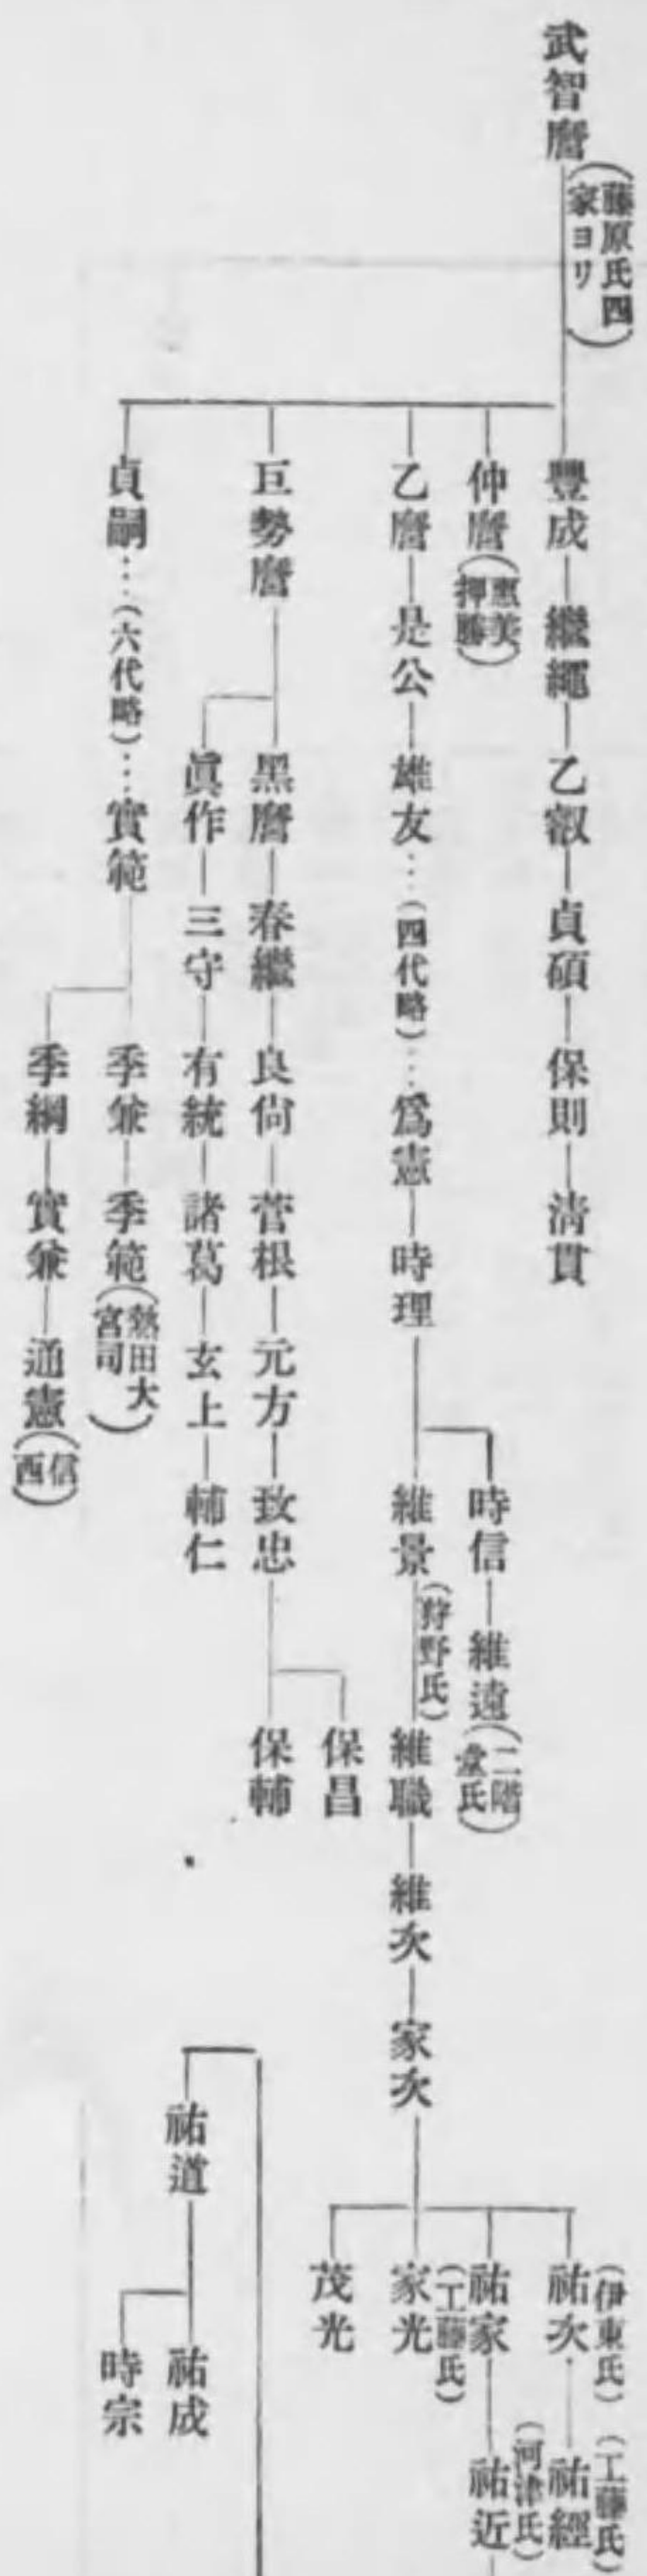 武智麿
(藤原氏四
家ヨリ)
豐成―繼繩―乙叡―貞碩―保則―淸貫
仲麿(惠美
押勝)
乙麿―是公―雄友…(四代略)…爲憲―時理
時信―維遠(二階
堂氏)
維景(狩野氏)維職―維次―家次
祐次(伊東氏)―祐經(工藤氏)
祐家―祐近(河津氏)
家光(工藤氏)
茂光
巨勢麿
黑麿―春繼―良尙―菅根―元方―致忠
保昌
保輔
眞作―三守―有統―諸葛―玄上―輔仁
貞嗣…(六代略)…實範
季兼―季範(熱田大
宮司)
季綱―實兼―通憲(信
西)
祐道
祐成
時宗